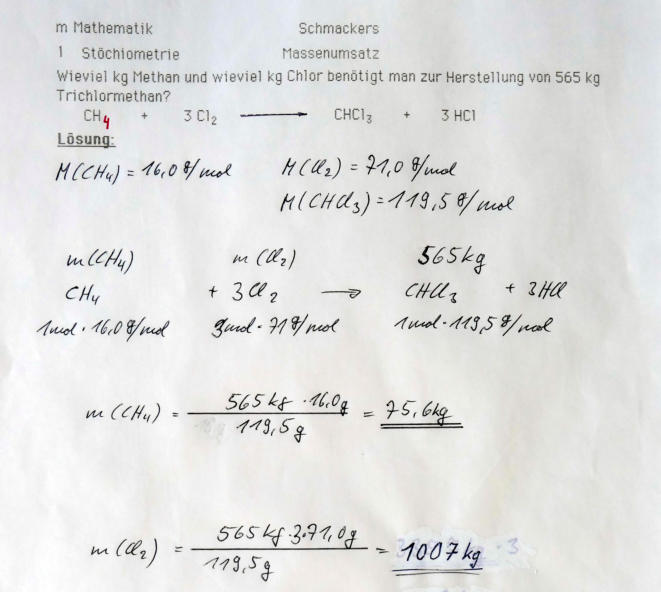 m Mathematik Schmackers
1 Stöchiometrie Massenumsatz
Wieviel kg Methan und wieviel kg Chlor benötigt man zur Herstellung von 565 kg
Trichlormethan?
CH4 + 3 Cl2 ⟶ CHCl3 + 3 HCl
Lösung:
M(CH4) = 16,0 g/mol M(Cl2) = 71,0 g/mol
M(CHCl3) = 119,5 g/mol
m(CH4) m(Cl2) 565kg
CH4 + 3Cl2 ⟶ CHCl3 + 3HCl
1mol · 16,0 g/mol 3mol · 71 g/mol 1mol · 119,5 g/mol
565 kg · 16,0g
m(CH4) = = 75,6kg
119,5g
565 kg · 3 · 71,0g
m(Cl2) = = 1007 kg
119,5g